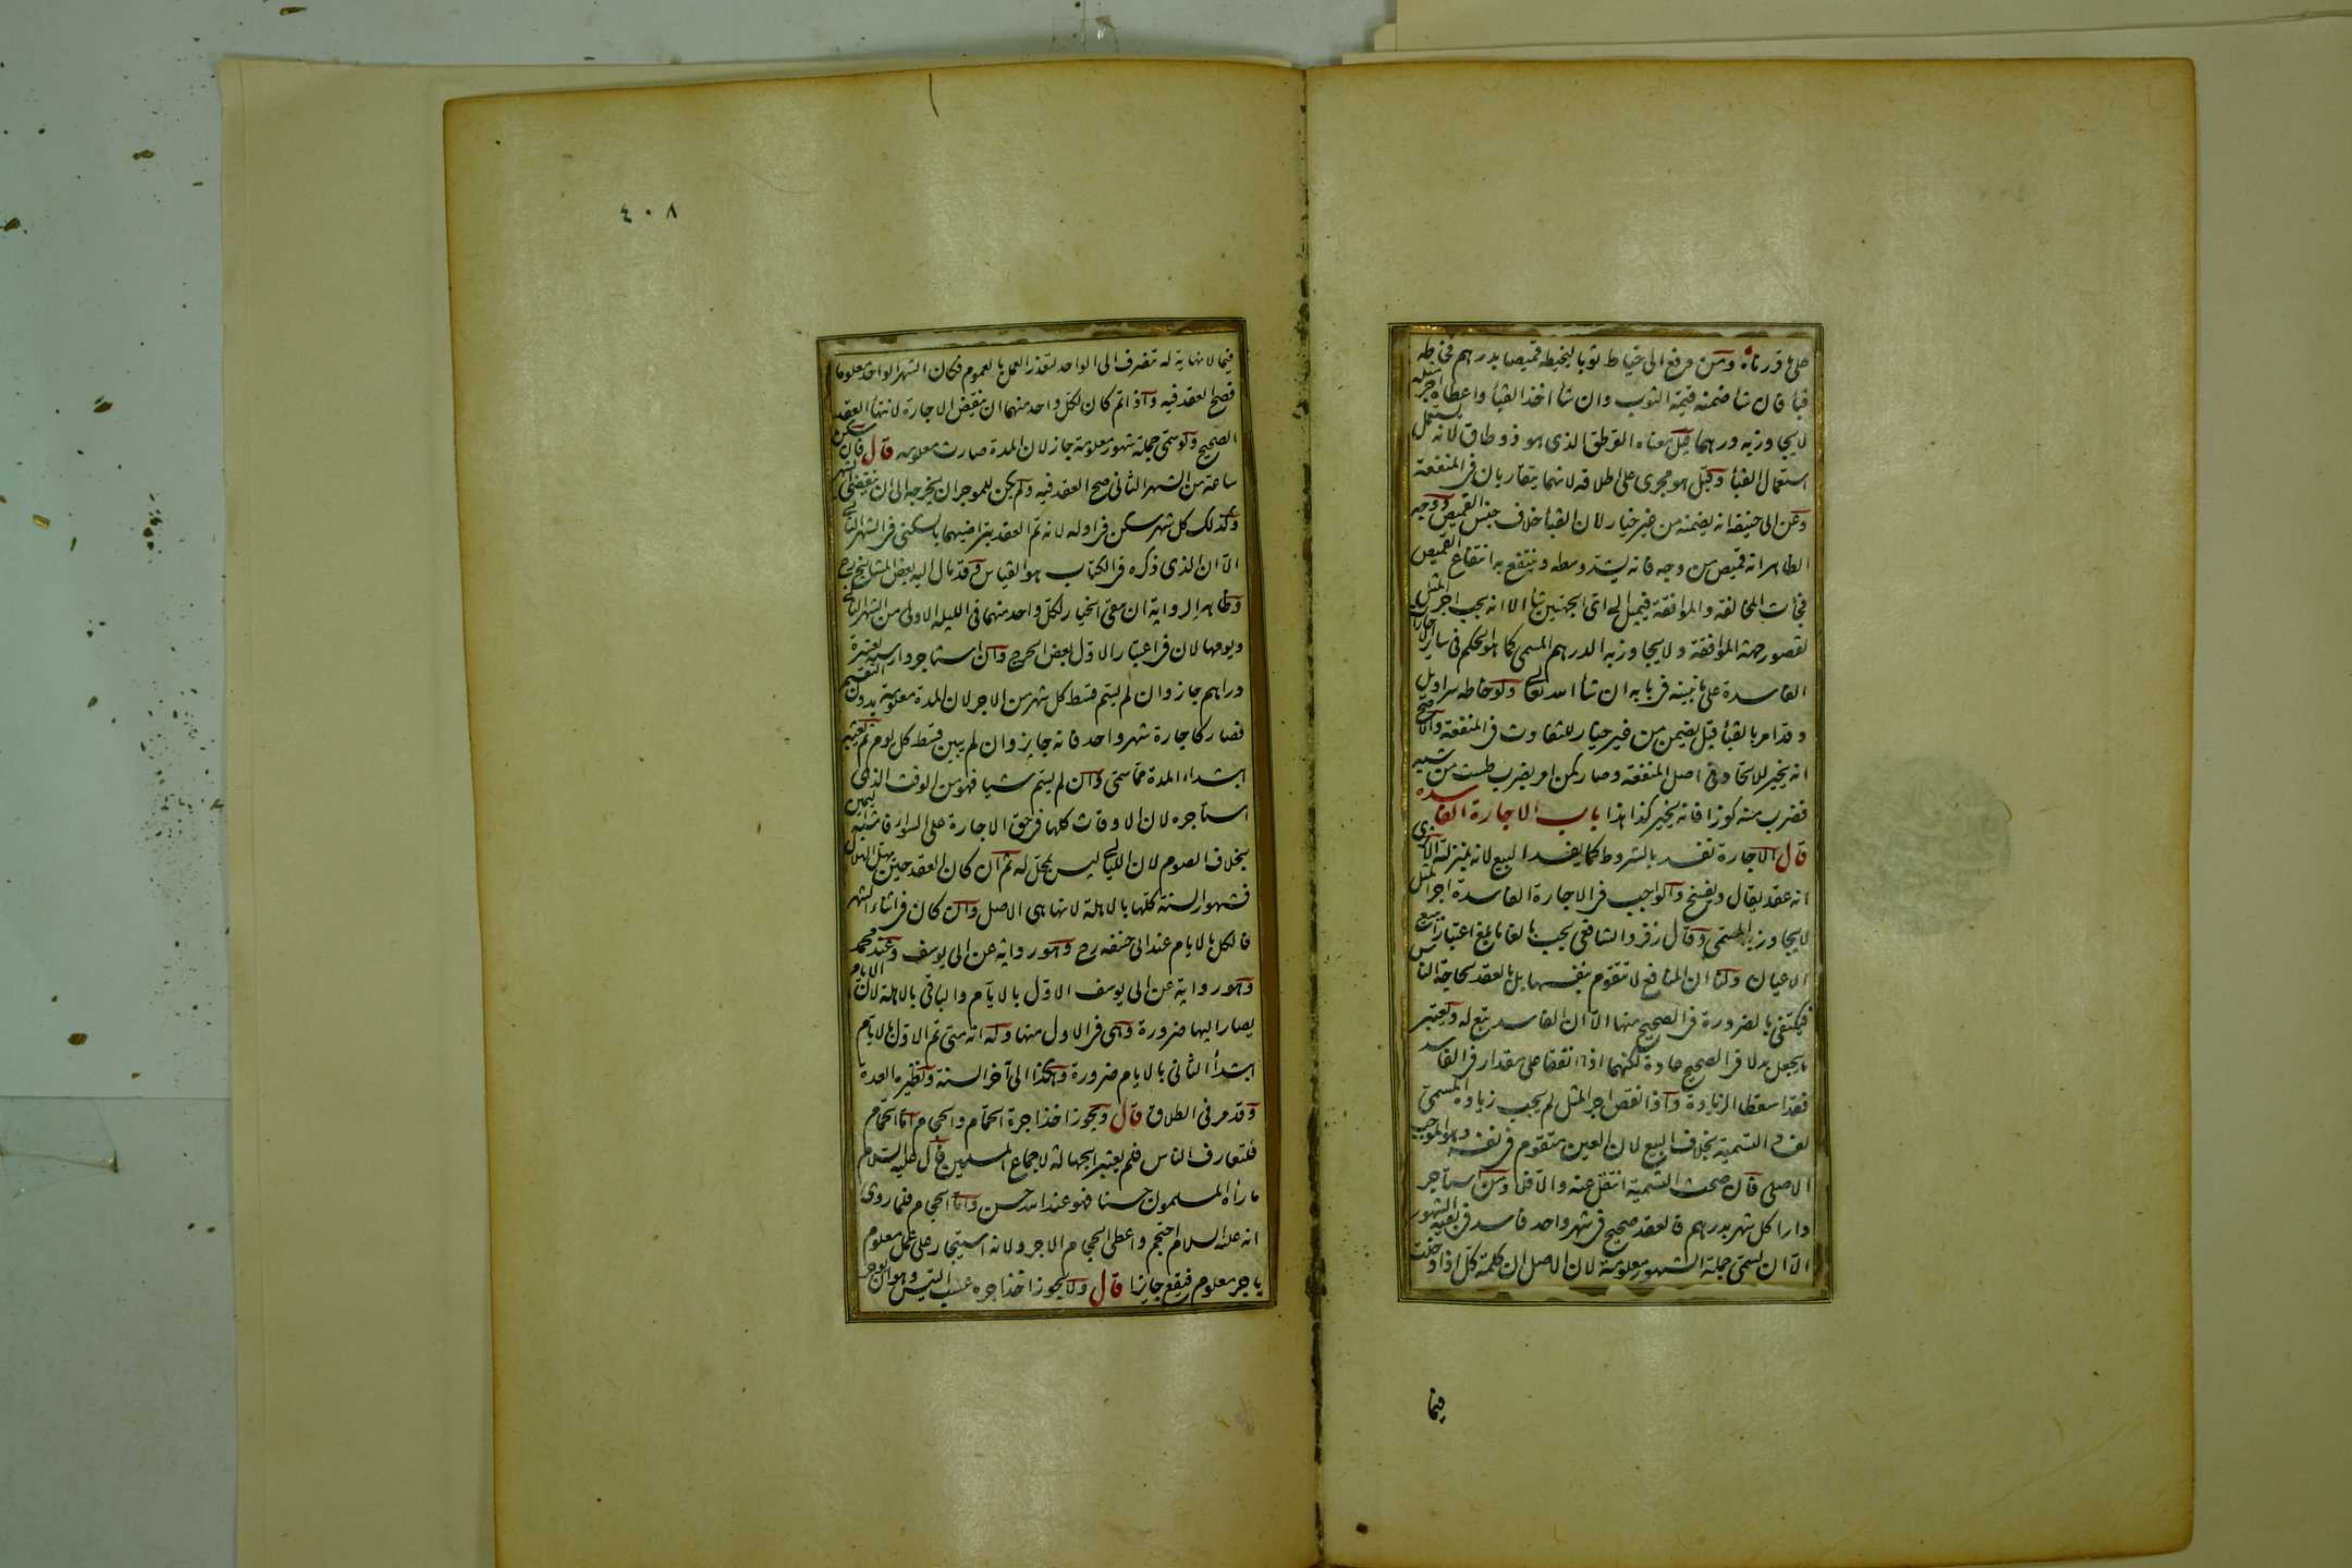 على ما قررناه ومن دفع الى خياط ثوبا ليخيطه قميصا بدرهم فخاطه
قباء فان شاء ضمنه قيمة الثوب وان شاء اخذ القباء واعطاه اجر مثله
لا يجاوز به درهما قيل معناه القرطق الذى هو ذو طاق لانه يستعمل
استعمال القباء وقيل هو مجرى على اطلاقه لانهما يتقاربان فى المنفعة
وعن ابى حنيفة انه يضمنه من غير خيار لان القباء خلاف جنس القميص ووجه
الظاهر انه قميص من وجه فانه يشد وسطه وينتفع به انتفاع القميص
فجاءت المخالفة والموافقة فيميل الى اى الجهتين شاء الا انه يجب اجر المثل
لقصور جهة الموافقة ولا يجاوز به الدرهم المسمى كما هو الحكم فى ساير الاجارات
الفاسدة على ما نبينه فى بابه ان شاء الله تعالى ولو خاطه سراويل
وقد امر بالقباء قيل يضمن من غير خيار للتفاوت فى المنفعة والاصح
انه يخير للاتحاد فى اصل المنفعة وصار كمن امر بضرب طست من شبه
فضرب منه كوزا فانه يخير كذا هذا باب الاجارة الفاسدة
قال الاجارة تفسد بالشروط كما يفسد البيع لانه بمنزلته الا ترى
انه عقد يقال ويفسخ والواجب فى الاجارة الفاسدة اجر المثل
لا يجاوز به المسمى وقال زفر والشافعى يجب بالغا ما بلغ اعتبارا ببيع
الاعيان ولنا ان المنافع لا تتقوم بنفسها بل بالعقد لحاجة الناس
فيكتفى بالضرورة فى الصحيح منها الا ان الفاسد تبع له ويعتبر
ما يجعل بدلا فى الصحيح عادة لكنهما اذا اتفقا على مقدار فى الفاسد
فقد اسقطا الزيادة واذا نقص اجر المثل لم يجب زيادة المسمى
لفساد التسمية بخلاف البيع لان العين متقوم فى نفسه وهو الموجب
الاصلى فان صحت التسمية انتقل عنه والا فلا ومن استاجر
دارا كل شهر بدرهم فالعقد صحيح فى شهر واحد فاسد فى بقية الشهور
الا ان تسمى جملة الشهور معلومة لان الاصل ان كلمة كل اذا دخلت
فيما
٤٠٨
فيما لا نهاية له تصرف الى الواحد لتعذر العمل بالعموم فكان الشهر الواحد معلوما
فصح العقد فيه واذا تم كان لكل واحد منهما ان ينقض الاجارة لانتهاء العقد
الصحيح ولو سمى جملة شهور معلومة جاز لان المدة صارت معلومه قال فان سكن
ساعة من الشهر الثانى صح العقد فيه ولم يكن للموجر ان يخرجه الى ان ينقضى الشهر
وكذلك كل شهر سكن فى اوله لانه تم العقد بتراضيهما بالسكنى فى الشهر الثانى
الا ان الذى ذكره فى الكتاب هو القياس وقد مال اليه بعض المشايخ رح
وظاهر الرواية ان معنى الخيار لكل واحد منهما فى الليلة الاولى من الشهر الثانى
ويومها لان فى اعتبار الاول بعض الحرج وان استاجر دارا سنة بعشرة
دراهم جاز وان لم يسم قسط كل شهر من الاجر لان المدة معلومة بدون التقسيم
فصار كاجارة شهر واحد فانه جايز وان لم يبين قسط كل يوم ثم يعتبر
ابتداء المدة مما سمى وان لم يسم شيا فهو من الوقت الذى
استاجره لان الاوقات كلها فى حق الاجارة على السواء فاشبه اليمين
بخلاف الصوم لان الليالى ليس بمحل له ثم ان كان العقد حين يهل الهلال
فشهور السنة كلها بالاهلة لانها هى الاصل وان كان فى اثناء الشهر
فالكل بالايام عند ابى حنيفه رح وهو رواية عن ابى يوسف وعند محمد
وهو رواية عن ابى يوسف الاول بالايام والباقى بالاهلة لان الايام
يصار اليها ضرورة وهى فى الاول منها وله انه متى تم الاول بالايام
ابتدأ الثانى بالايام ضرورة وهكذا الى آخر السنة ونظيره العدة
وقد مر فى الطلاق قال ويجوز اخذ اجرة الحمام والحجام اما الحمام
فلتعارف الناس فلم يعتبر الجهالة لاجماع المسلمين قال عليه السلام
ما رآه المسلمون حسنا فهو عند الله حسن واما الحجام فلما روى
انه عليه السلام احتجم واعطى الحجام الاجر ولانه استيجار على عمل معلوم
باجر معلوم فيقع جايزا قال ولا يجوز اخذ اجره عسب التيس وهو ان يوجر